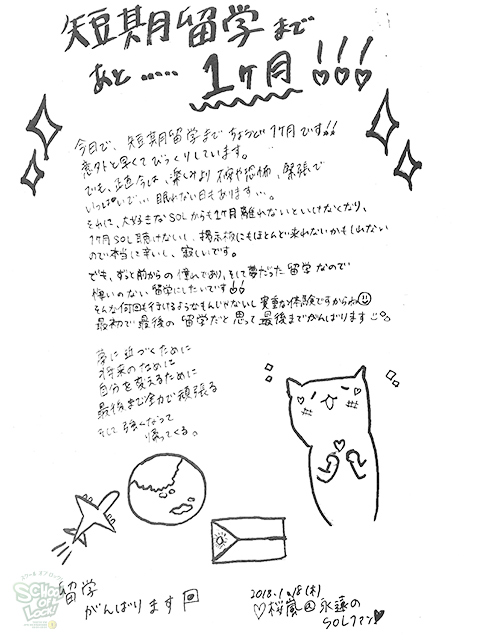 短期留学まで
あと…… 1ヶ月!!!
今日で、短期留学までちょうど1ヶ月です!!
意外と早くてびっくりしています。
でも、正直今は、楽しみより不安や恐怖、緊張で
いっぱいで… 眠れない日もあります…。
それに、大好きなSOLからも1ヶ月離れないといけなくなり、
1ヶ月SOL聴けないし、掲示板にもほとんど来れないかもしれない
ので本当に辛いし、寂しいです。
でも、ずっと前からの憧れであり、そして夢だった留学なので
悔いのない留学にしたいです
そんな何回も行けるようなもんじゃないし貴重な体験ですからね
最初で最後の留学だと思って最後までがんばります
夢に近づくために
将来のために
自分を変えるために
最後まで全力で頑張る
そして強くなって
帰ってくる。
留学
がんばります
2018.1.18(木)
♡桜嵐 永遠の
SOLファン♥
SCHOOL OF LOCK!